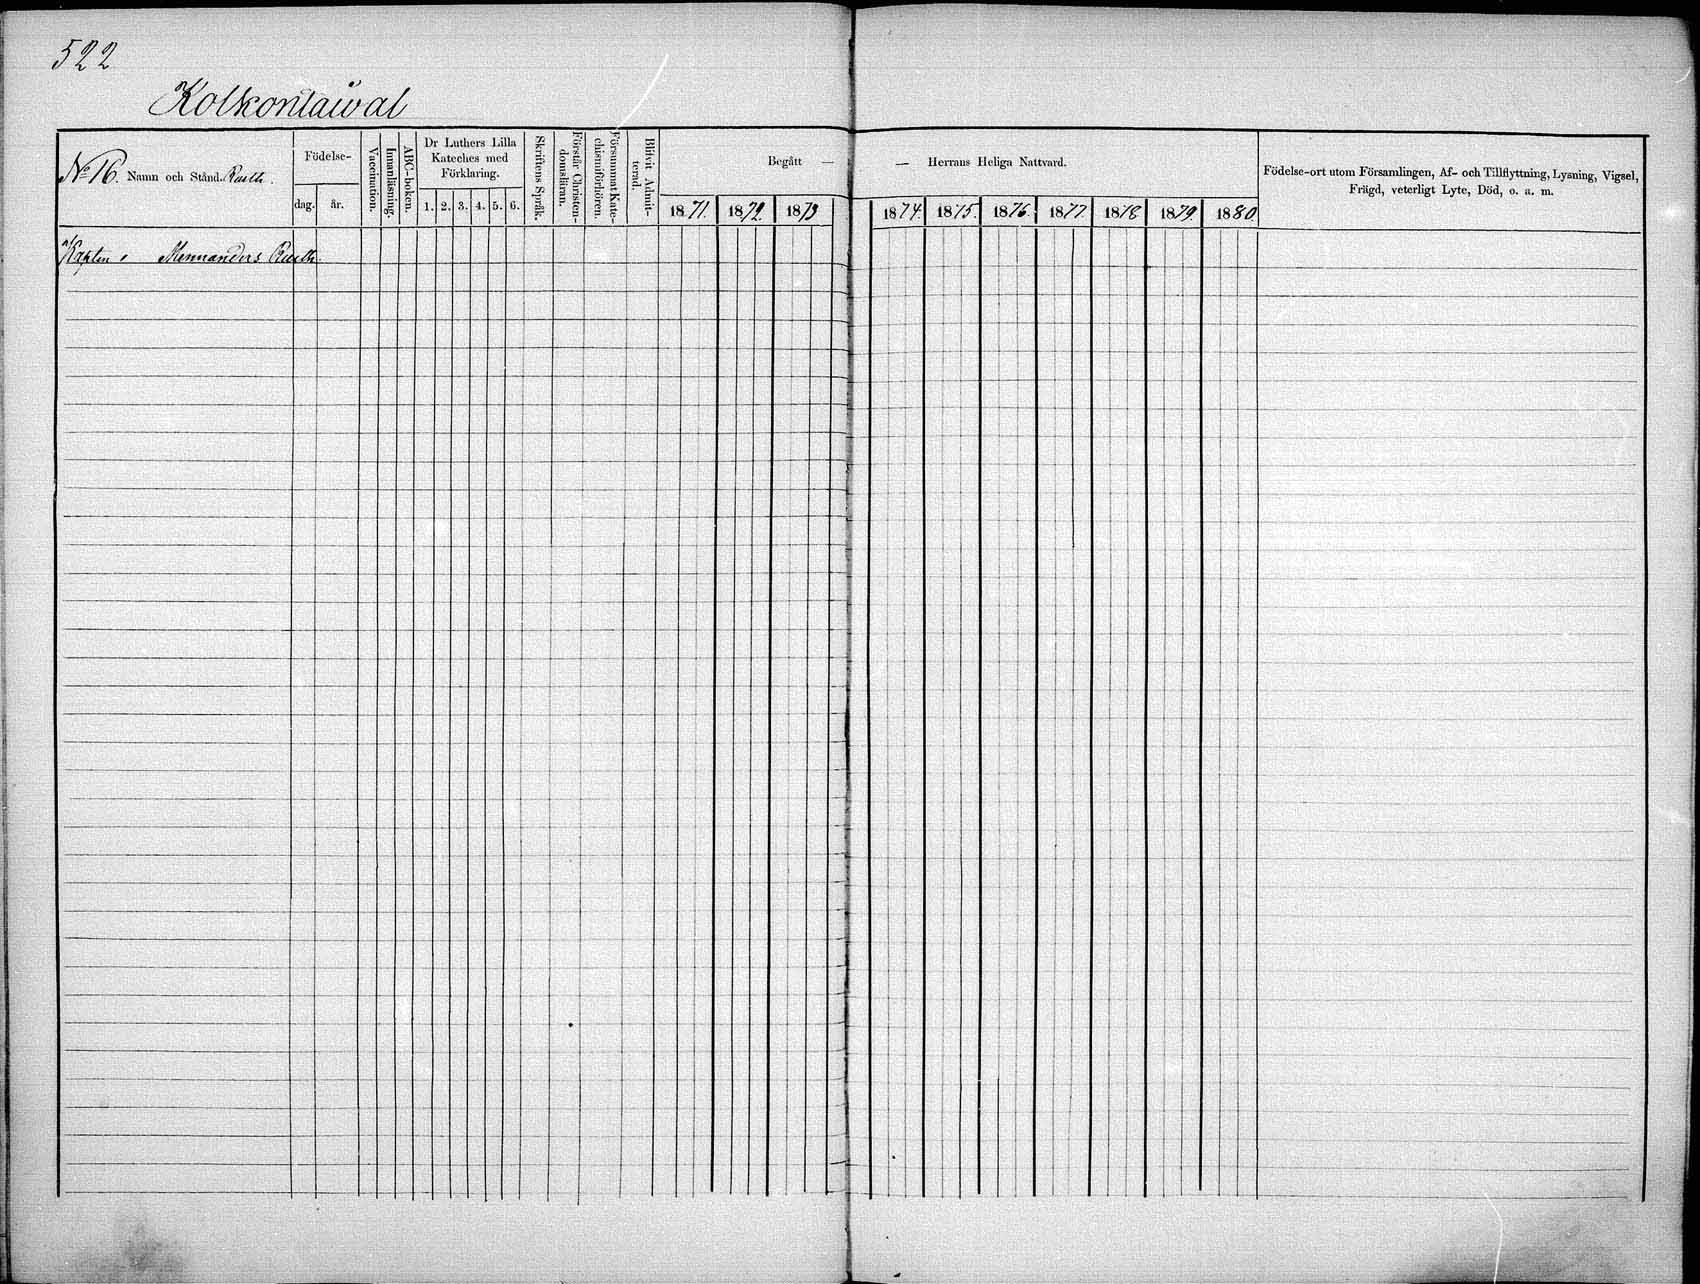 522
Kolkontaival
No 16. Namn och Stånd. Rusth.
Födelse-
dag. år.
Vaccination.
Innanläsning.
ABC-boken.
Dr Luthers Lilla
Kateches med
Förklaring.
1. 2. 3. 4. 5. 6.
Skriftens Språk.
Förstår Christen-
domsläran.
Försummat Kate-
chismiförhören.
Blifvit Admit-
terad.
Begått —
1871. 1872. 1873
— Herrans Heliga Nattvard.
1874. 1875. 1876. 1877 1878 1879. 1880
Födelse-ort utom Församlingen, Af- och Tillflyttning, Lysning, Vigsel,
Frägd, veterligt Lyte, Död, o. a. m.
Kapten Mennanders Rusth.